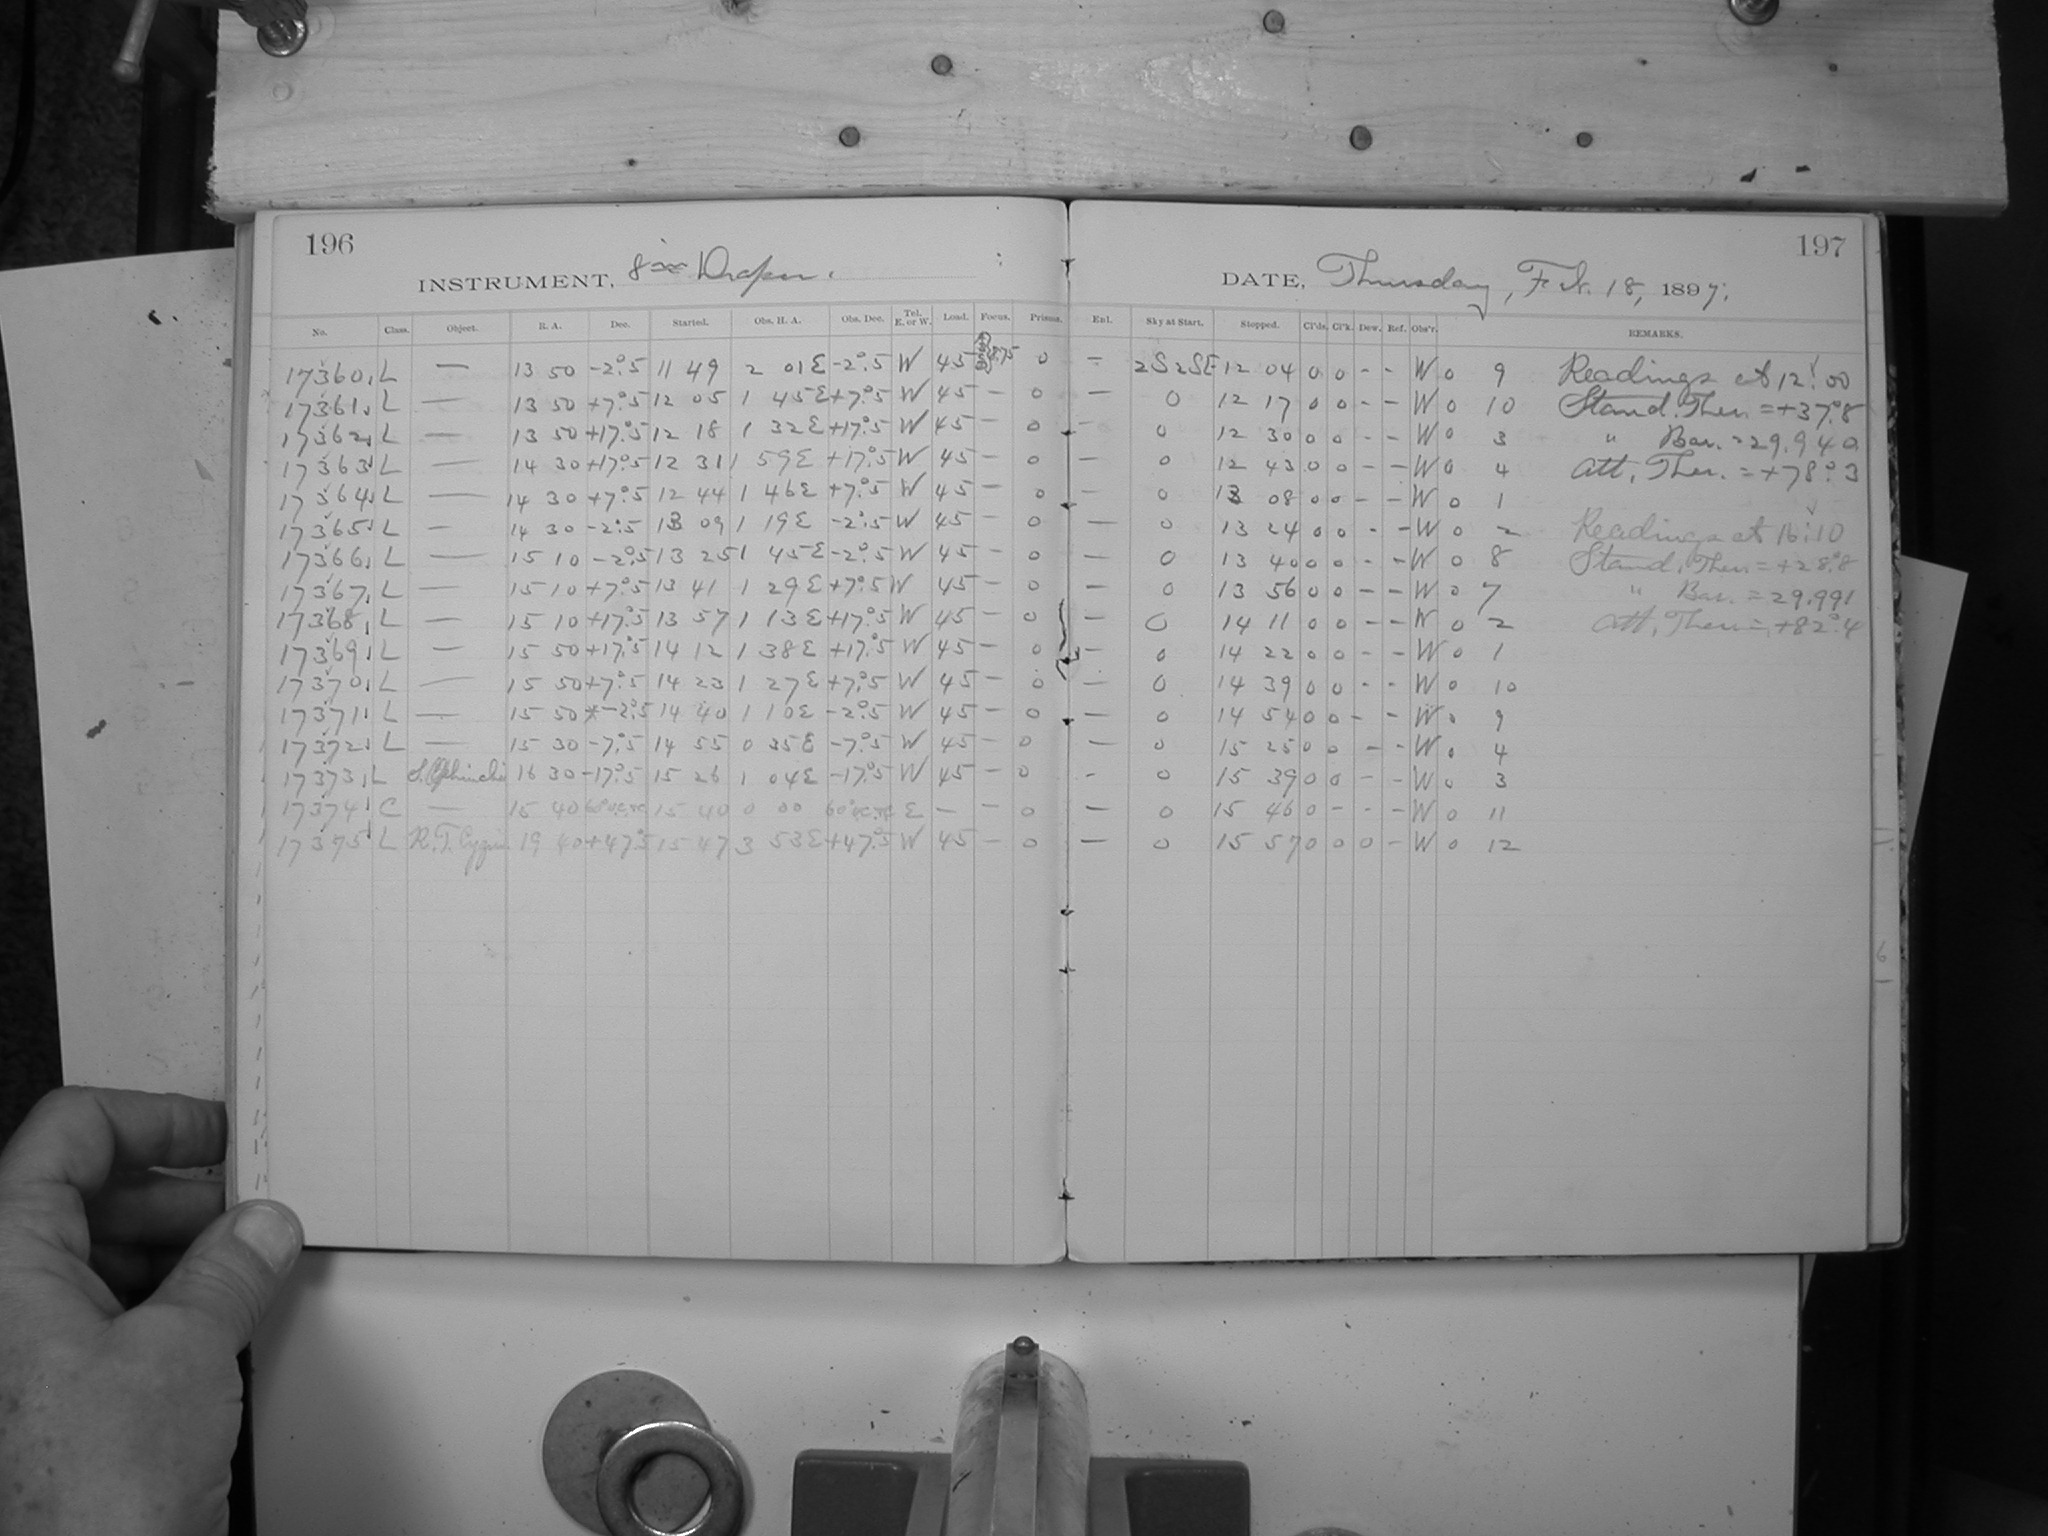 196
INSTRUMENT, 8 in Draper.
No. Class. Object. R. A. Dec. Started. Obs. H. A. Obs. Dec. Tel. E. or W. Load. Focus. Prisms.
17360, L — 13 50 -2°.5 11 49 2 01E -2°.5 W 45 8.75 0
17361, L — 13 50 +7°.5 12 05 1 45E +7°.5 W 45 — 0
17362, L — 13 50 +17°.5 12 18 1 32E +17°.5 W 45 — 0
17363, L — 14 30 +17°.5 12 31 1 59E +17°.5 W 45 — 0
17364, L — 14 30 +7°.5 12 44 1 46E +7°.5 W 45 — 0
17365, L — 14 30 -2°.5 13 09 1 19E -2°.5 W 45 — 0
17366, L — 15 10 -2°.5 13 25 1 45E -2°.5 W 45 — 0
17367, L — 15 10 +7°.5 13 41 1 29E +7°.5 W 45 — 0
17368, L — 15 10 +17°.5 13 57 1 13E +17°.5 W 45 — 0
17369, L — 15 50 +17°.5 14 12 1 38E +17°.5 W 45 — 0
17370, L — 15 50 +7°.5 14 23 1 27E +7°.5 W 45 — 0
17371, L — 15 50 -2°.5 14 40 1 10E -2°.5 W 45 — 0
17372, L — 15 30 -7°.5 14 55 0 35E -7°.5 W 45 — 0
17373, L S. Ophiuchi 16 30 -17°.5 15 26 1 04E -17°.5 W 45 — 0
17374, C — 15 40 60° 15 40 0 00 60° E — — 0
17375, L R.T. Cygni 19 40 +47°.5 15 47 3 53E +47°.5 W 45 — 0
197
DATE, Thursday, Feb. 18, 1897.
Enl. Sky at Start. Stopped. Cl'ds. Cl'k. Dew. Ref. Obs'r. REMARKS.
— 2S2SE 12 04 0 0 - - W 0 9 Readings at 12:00
— 0 12 17 0 0 - - W 0 10 Stand. Ther. = +37°.8
— 0 12 30 0 0 - - W 0 3 " Bar. = 29.940
— 0 12 43 0 0 - - W 0 4 Att. Ther. = +78°.3
— 0 13 08 0 0 - - W 0 1
— 0 13 24 0 0 - - W 0 2 Readings at 16:10
— 0 13 40 0 0 - - W 0 8 Stand. Ther. = +28°.8
— 0 13 56 0 0 - - W 0 7 " Bar. = 29.991
— 0 14 11 0 0 - - W 0 2 Att. Ther. = +82°.4
— 0 14 22 0 0 - - W 0 1
— 0 14 39 0 0 - - W 0 10
— 0 14 54 0 0 - - W 0 9
— 0 15 25 0 0 - - W 0 4
- 0 15 39 0 0 - - W 0 3
— 0 15 46 0 - - - W 0 11
— 0 15 57 0 0 0 - W 0 12